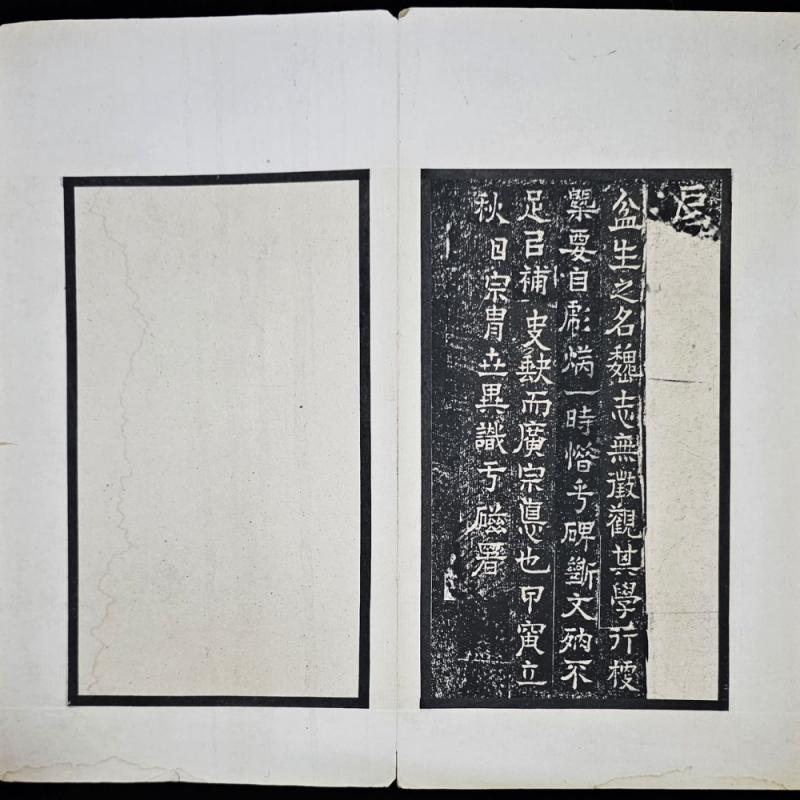 盆生之名魏志無徵觀其學行梗
槩要自彪炳一時惜乎碑斷文殘不
足㠯補史缺而廣宗惪也甲寅立
秋日宗胄世異識于磁署